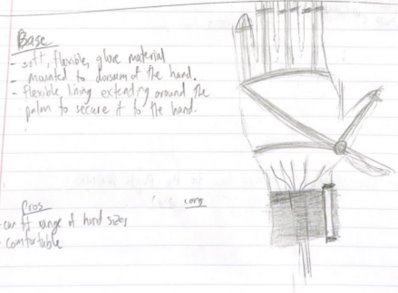 Base
- soft, flexible, glove material
- mounted to dorsum of the hand.
- flexible lining extending around the
palm to secure it to the hand.
Pros
cons
- can fit range of hand sizes
- comfortable